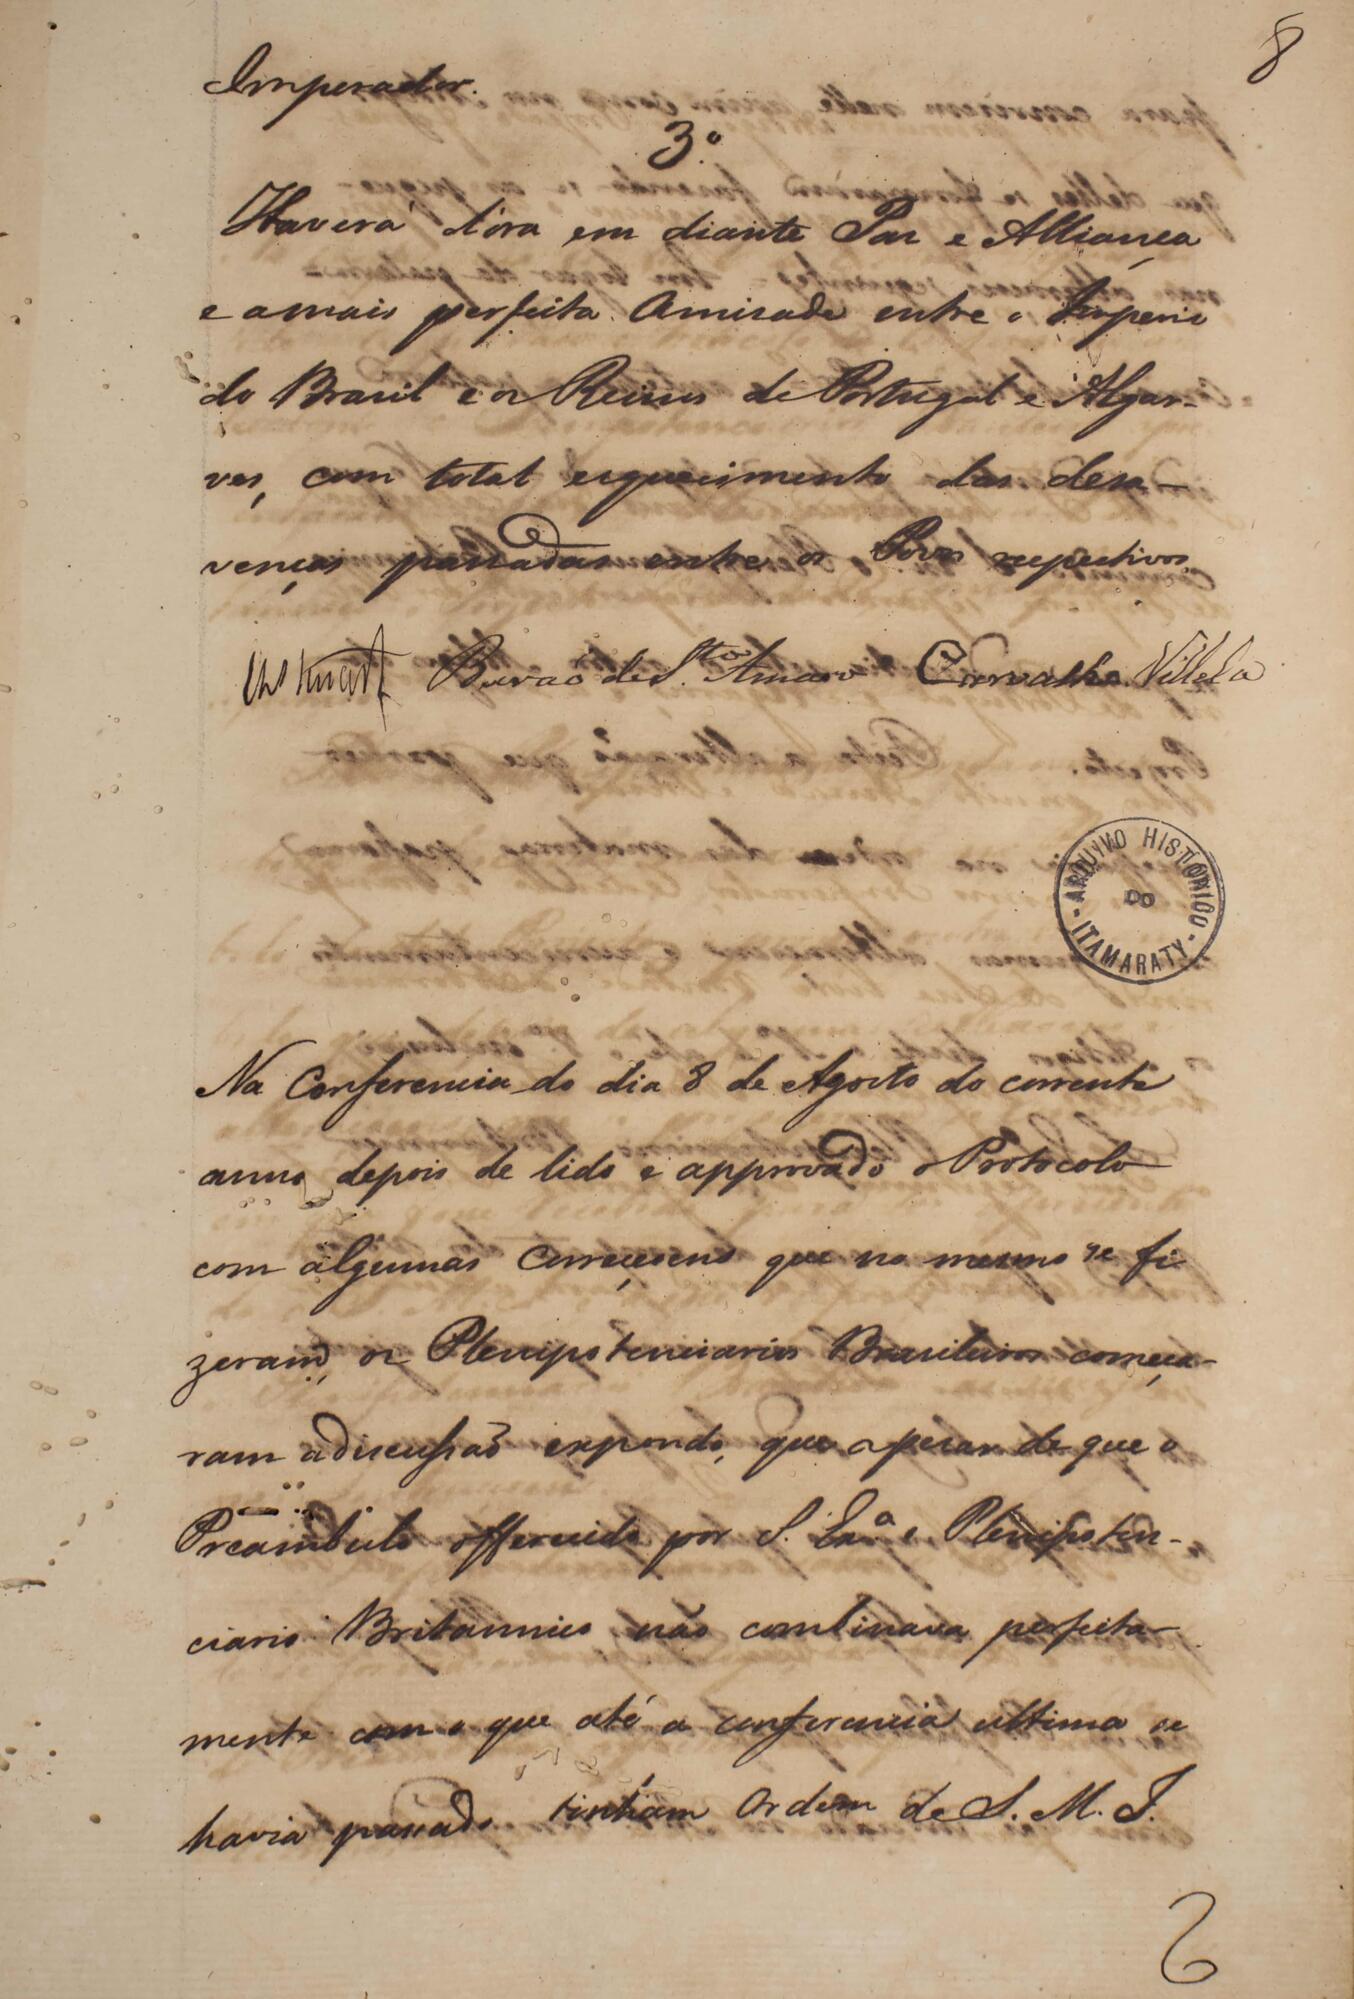 8
Imperador.
3.º
Haverá d'óra em diante Paz e Alliança
e a mais perfeita Amizade entre o Imperio
do Brasil e os Reinos de Portugal e Algar-
ves, com total esquecimento das desa-
venças passadas entre os Povos respectivos.
Ch Stuart Barão de S.to Amaro Carvalho Villela
ARQUIVO HISTÓRICO
DO
ITAMARATY
Na Conferencia do dia 8 de Agosto do corrente
anno, depois de lido e approvado o Protocolo
com algumas correçoens que no mesmo se fi
zeram, os Plenipotenciarios Brasileiros começa-
ram a discussão expondo, que apesar de que o
Preambulo offerecido por S. Ex.ª o Plenipoten-
ciario Britannico não combinava perfeita-
mente com o que até a conferencia ultima se
havia passado tinham Ordem de S. M. I.
6